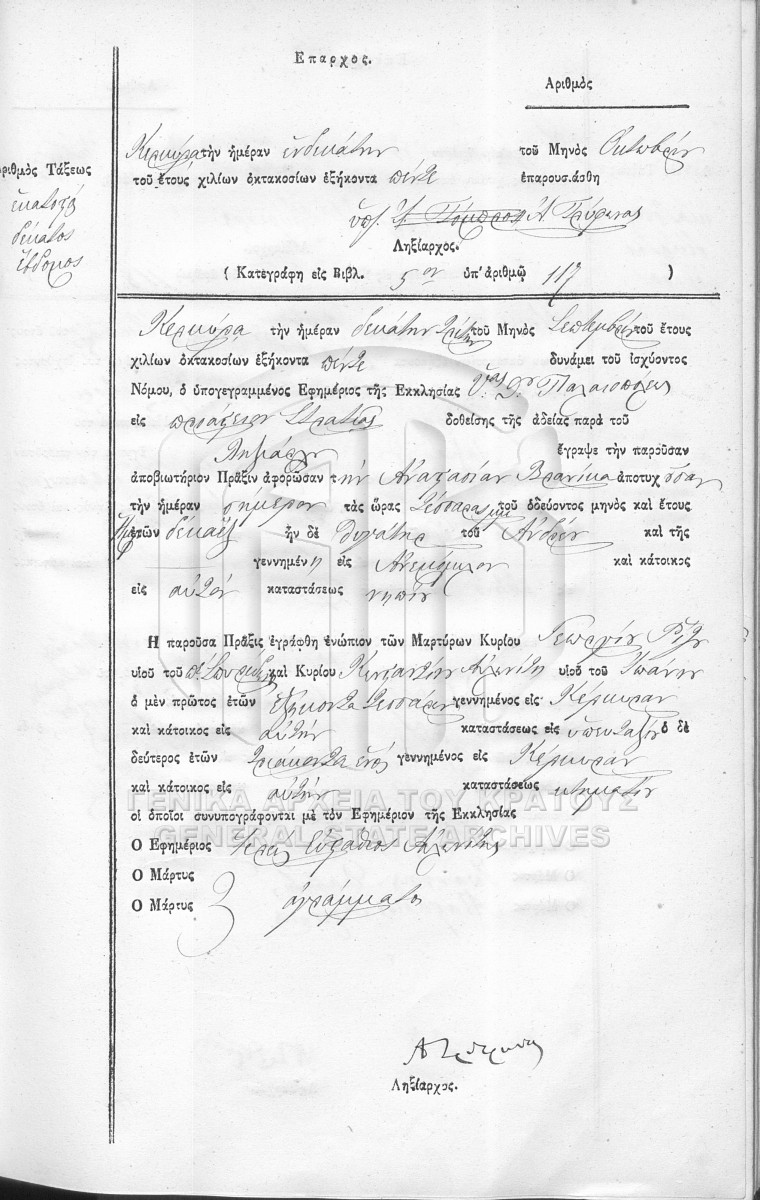 Επαρχος.
Αριθμὸς
Κερκύρα τὴν ἡμέραν ἑνδεκάτην τοῦ Μηνὸς Ὀκτωβρίου
τοῦ ἔτους χιλίων ὀκτακοσίων ἑξήκοντα πέντε ἐπαρουσιάσθη
Ληξίαρχος.
( Κατεγράφη εἰς Βιβλ. 5ον ὑπ' ἀριθμῷ 117 )
ριθμὸς Τάξεως
ἑκατοστὸς
δέκατος
ἕβδομος
Κερκύρα τὴν ἡμέραν δεκάτην τρίτην τοῦ Μηνὸς Σεπτεμβρίου τοῦ ἔτους
χιλίων ὀκτακοσίων ἑξήκοντα πέντε δυνάμει τοῦ ἰσχύοντος
Νόμου, ὁ ὑπογεγραμμένος Ἐφημέριος τῆς Ἐκκλησίας Παλαιοπόλεως
εἰς προάστειον Στρατιᾶς δοθείσης τῆς ἀδείας παρὰ τοῦ
Ληξιάρχου ἔγραψε τὴν παροῦσαν
ἀποβιωτήριον Πρᾶξιν ἀφορῶσαν τὴν Ἀναστασίαν Βρανίκα ἀποτυχοῦσαν
τὴν ἡμέραν σήμερον τὰς ὥρας τέσσαρας μμ τοῦ ὁδεύοντος μηνὸς καὶ ἔτους
ἐτῶν δεκαὲξ ἦν δὲ θυγάτηρ τοῦ Ἀνδρέου καὶ τῆς
γεννημένη εἰς Ἀνεμόμυλον καὶ κάτοικος
εἰς αὐτὸν καταστάσεως νηπίου
Η παροῦσα Πρᾶξις ἐγράφθη ἐνώπιον τῶν Μαρτύρων Κυρίου Γεωργίου
υἱοῦ τοῦ π. Σπυρίδωνος καὶ Κυρίου Κωνσταντίνου Αὐλωνίτη υἱοῦ τοῦ Ἰωάννου
ὁ μὲν πρῶτος ἐτῶν ἑξήκοντα τεσσάρων γεννημένος εἰς Κέρκυραν
καὶ κάτοικος εἰς αὐτὴν καταστάσεως εἰς ὁ δὲ
δεύτερος ἐτῶν τριάκοντα ἑνὸς γεννημένος εἰς Κέρκυραν
καὶ κάτοικος εἰς αὐτὴν καταστάσεως κτηματίου
οἱ ὁποῖοι συνυπογράφονται μὲ τὸν Ἐφημέριον τῆς Ἐκκλησίας
Ο Ἐφημέριος Ἱερεὺς Εὐστάθιος Αὐλωνίτης
Ο Μάρτυς
Ο Μάρτυς ἀγράμματοι
Ληξίαρχος.
ΓΕΝΙΚΑ ΑΡΧΕΙΑ ΤΟΥ ΚΡΑΤΟΥΣ
GENERAL STATE ARCHIVES